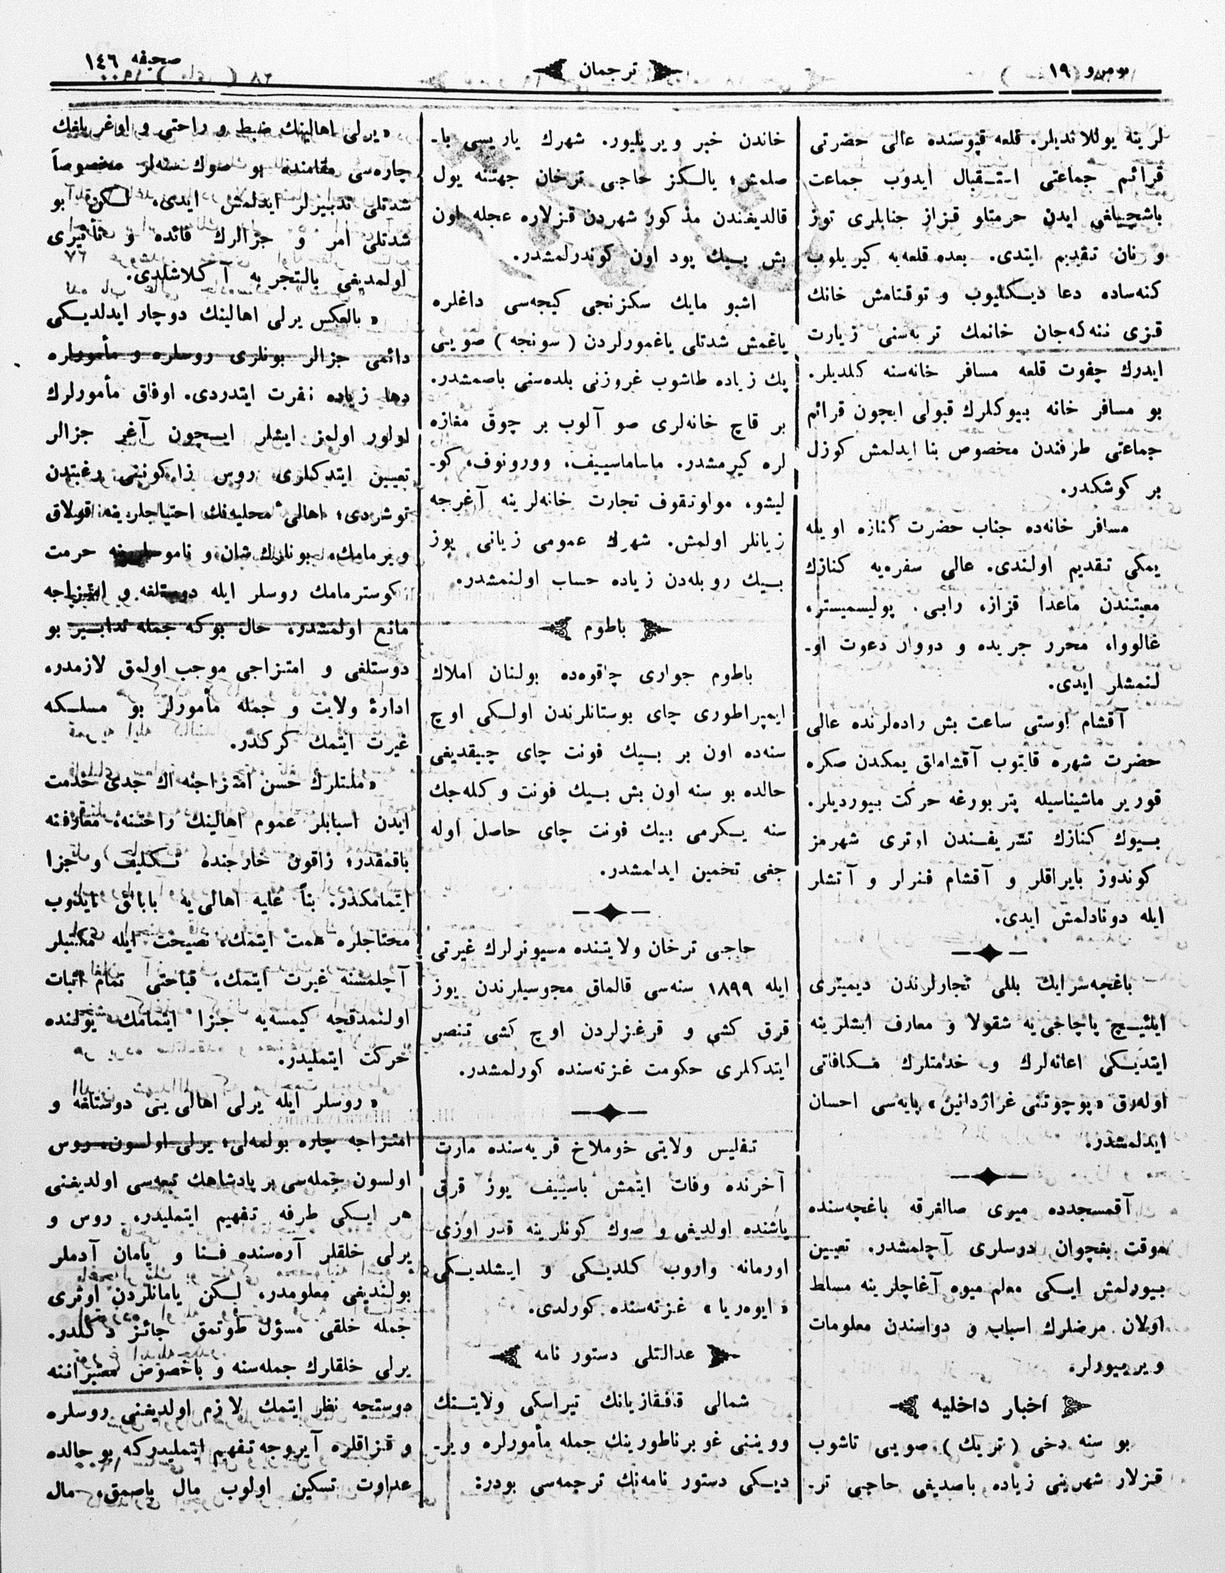 نومرو ١٩
ترجمان
صحيفه ١٤٦
لرينه يوللانديلر. قلعه قپوسنده عالی حضرتی
قرائم جماعتی استقبال ايدوب جماعت
باشچيلغی ايدن حرمتلو قزاز جنابلری توز
و نان تقديم ايتدی. بعده قلعه‌يه كيريلوب
كنه‌ساده دعا ديكليوب و توقتامش خانك
قزی ننه‌كه‌جان خانمك تربه‌سنی زيارت
ايدرك چفوت قلعه مسافر خانه‌سنه كلديلر.
بو مسافر خانه بيوكلرك قبولی ايچون قرائم
جماعتی طرفندن مخصوص بنا ايدلمش كوزل
بر كوشكدر.
مسافر خانه‌ده جناب حضرت كنازه اويله
يمكی تقديم اولندی. عالی سفره‌يه كنازك
معيتندن ماعدا قزاز، رابی. پوليسميستر،
غالووا، محرر جريده و دووان دعوت او-
لنمشلر ايدی.
آقشام اوستی ساعت بش راده‌لرنده عالی
حضرت شهره قايتوب آقشاملق يمكدن صكره
قورير ماشيناسيله پتربورغه حركت بيورديلر.
بيوك كنازك تشريفندن اوتری شهرمز
كوندوز بايراقلر و آقشام فنرلر و آتشلر
ايله دوناد‌لمش ايدی.
باغچه‌سرايك بللی تجارلرندن ديميتری
ايليچ پاچاجی‌يه شقولا و معارف ايشلرينه
ايتديكی اعانه‌لرك و خدمتلرك مكافاتی
اوله‌رق «پوچوتنی غراژدانين» پايه‌سی احسان
ايدلمشدر.
آقمسجدده ميوی صالغرقه باغچه‌سنده
موقت بغچوان درسلری آچلمشدر. تعيين
بيورلمش ايكی معلم ميوه آغاچلرينه مسلط
اولان مرضلرك اسباب و دواسندن معلومات
ويرييورلر.
اخبار داخليه
بو سنه دخی (تريك) صويی تاشوب
قزلار شهرينی زياده باصديغی حاجی تر-
خاندن خبر ويريليور. شهرك ياريسی با-
صلمش؛ يالكز حاجی ترخان جهتنه يول
قالديغندن مذكور شهردن قزلاره عجله اون
بش بيك پود اون كوندرلمشدر.
اشبو مايك سكزنجی كيجه‌سی داغلره
ياغمش شدتلی ياغمورلردن (سونجه) صويی
پك زياده طاشوب غروزنی بلده‌سنی باصمشدر.
بر قاچ خانه‌لری صو آلوب بر چوق مغازه
لره كيرمشدر. ماساماسييف، وورونوف، كو-
ليشو، مواوتقوف تجارت خانه‌لرينه آغرجه
زيانلر اولمش. شهرك عمومی زيانی يوز
بيك روبله‌دن زياده حساب اولنمشدر.
باطوم
باطوم جواری چاقوه‌ده بولنان املاك
ايمپراطوری چای بوستانلرندن اولكی اوچ
سنه‌ده اون بر بيك فونت چای چيقديغی
حالده بو سنه اون بش بيك فونت و كله‌جك
سنه يكرمی بيك فونت چای حاصل اوله
جغی تخمين ايدلمشدر.
حاجی ترخان ولايتنده مسيونرلرك غيرتی
ايله ١٨٩٩ سنه‌سی قالماق مجوسيلرندن يوز
قرق كشی و قرغزلردن اوچ كشی تنصر
ايتدكلری حكومت غزته‌سنده كورلمشدر.
تفليس ولايتی خوملاخ قريه‌سنده مارت
آخرنده وفات ايتمش باسييف يوز قرق
ياشنده اولديغی و صوك كونلرينه قدر اوزی
اورمانه واروب كلديكی و ايشلديكی
«ايوه‌ريا» غزته‌سنده كورلدی.
عدالتلی دستور نامه
شمالی قافقازيانك تيراسكی ولايتنك
وويننی غوبرناطورينك جمله مأمورلره وير-
ديكی دستور نامه‌نك ترجمه‌سی بودر:
«يرلی اهالينك ضبط و راحتی و اوغريلغك
چاره‌سی مقامنده بو صوك سنه‌لر مخصوصاً
شدتلی تدبيرلر ايدلمش ايدی. لكن بو
شدتلی امر و جزالرك فائده و تأثيری
اولمديغی بالتجربه آكلاشلدی.
«بالعكس يرلی اهالينك دوچار ايدلديكی
دائمی جزالر بونلری روسلره و مأمورلره
دها زياده نفرت ايتدردی. اوفاق مأمورلرك
اولور اولمز ايشلر ايچون آغر جزالر
تعيين ايتدكلری، روس زاكونينی رغبتدن
توشردی؛ اهالیٔ محليه‌نك احتياجلرينه قولاق
ويرمامك، بونلرك شان و ناموسلرينه حرمت
كوسترمامك روسلر ايله دوستلغه و امتزاجه
مانع اولمشدر، حال بوكه جمله تدابير بو
دوستلغی و امتزاجی موجب اولمق لازمدر،
ادارهٔ ولايت و جمله مأمورلر بو مسلكه
غيرت ايتمك كركدر.
«ملتلرك حسن امتزاجنه اك جدی خدمت
ايدن اسبابلر عموم اهالينك راحتنه، معارفنه
باقمقدر؛ زاقون خارجنده تكليف و جزا
ايتمامكدر. بناً عليه اهالی‌يه بابالق ايدوب
محتاجلره همت ايتمك، نصيحت ايله مكتبلر
آچلمسنه غيرت ايتمك، قباحتی تمام اثبات
اولنمدقجه كيمسه‌يه جزا ايتمامك يولنده
حركت ايتمليدر.
«روسلر ايله يرلی اهالی‌يی دوستلغه و
امتزاجه چاره بولمه‌لی؛ يرلی اولسون، روس
اولسون جمله‌سی بر پادشاهك تبعه‌سی اولديغنی
هر ايكی طرفه تفهيم ايتمليدر. روس و
يرلی خلقلر آره‌سنده فنا و يامان آدملر
بولنديغی معلومدر، لكن يامانلردن اوتری
جمله خلقی مسؤل طوتمق جائز دكلدر.
يرلی خلقلرك جمله‌سنه و باخصوص معتبراننه
دوستجه نظر ايتمك لازم اولديغنی روسلره
و قزاقلره آيروجه تفهيم ايتمليدركه بو حالده
عداوت تسكين اولوب مال ياصمق، مال